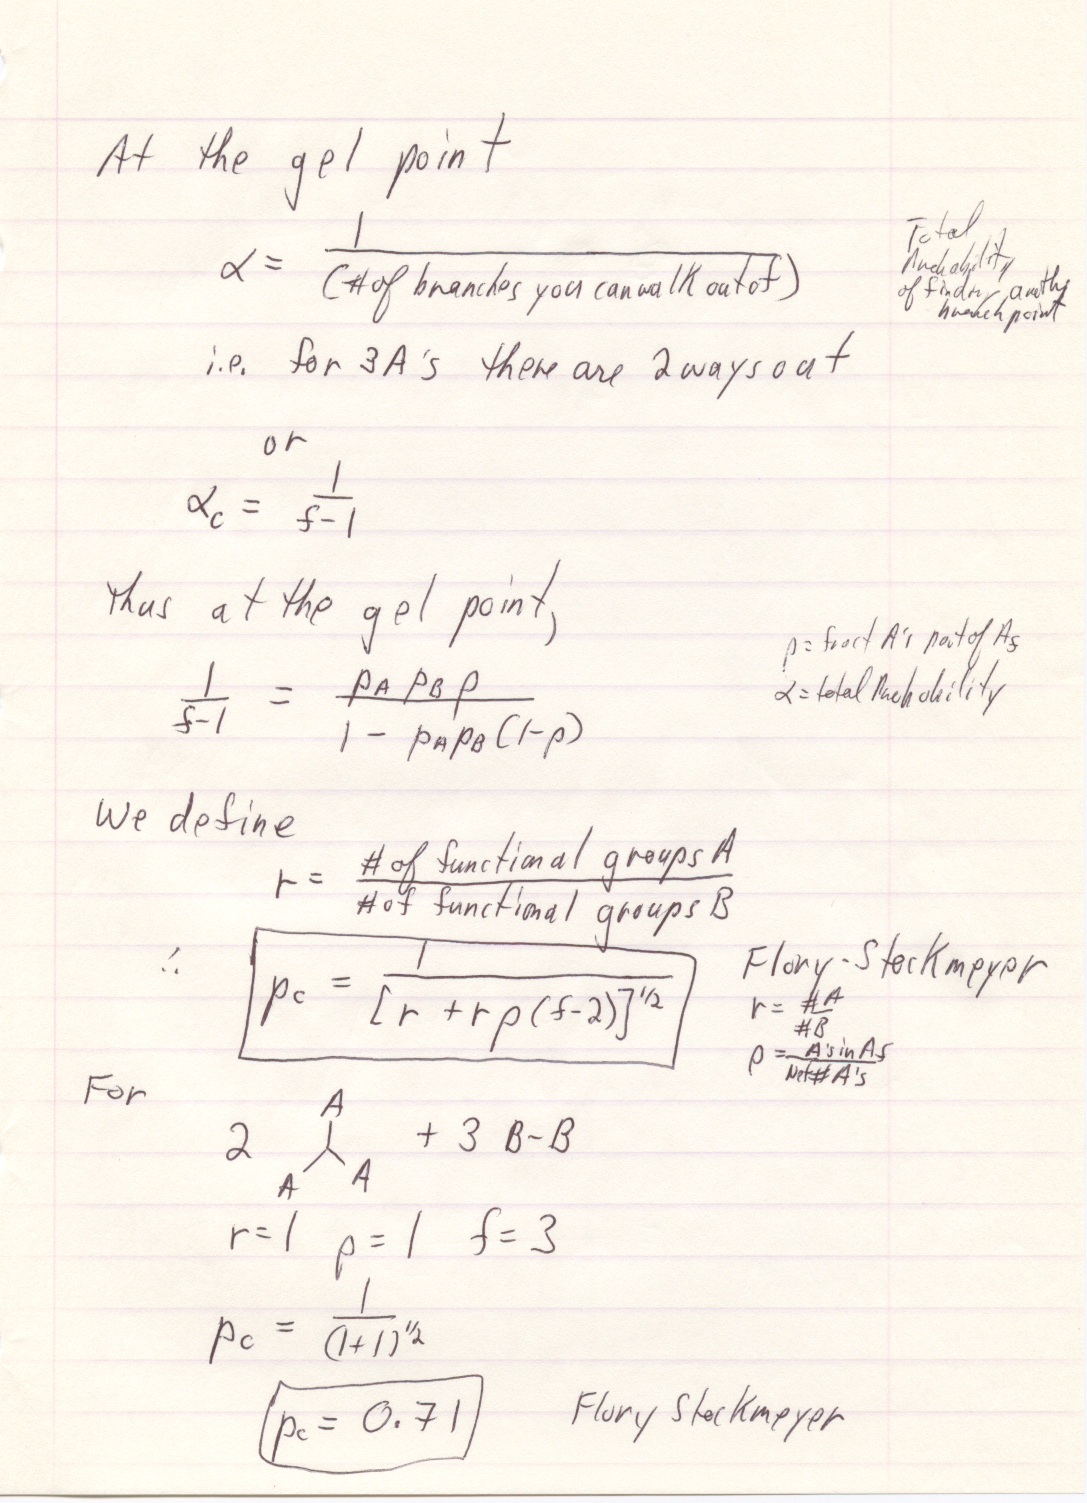 At the gel point
α = 1 / (# of branches you can walk out of)
Total
Probability
of finding another
branch point
i.e. for 3 A's there are 2 ways out
or
αc = 1 / f-1
Thus at the gel point,
ρ = fract A's part of Af
1 / f-1 = pA pB ρ / 1 - pA pB (1-ρ)
α = total Probability
We define
r = # of functional groups A / # of functional groups B
∴ pc = 1 / [r + r ρ (f-2)]^1/2
Flory-Stockmeyer
r = #A / #B
ρ = A's in Af / Net # A's
For
A
2 + 3 B-B
A A
r = 1 ρ = 1 f = 3
pc = 1 / (1+1)^1/2
pc = 0.71 Flory Stockmeyer